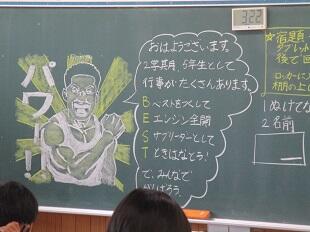 パワー!!
おはようございます。
2学期、5年生として
行事がたくさんあります。
BベストをつくしてE
Eエンジン全開
Sサブリーダーとして
Tときはなとう!
で、みんなで
がんばろう
322
☆宿題
タブレット
後で
ロッカー
棚の上
1ぬけ
2名前